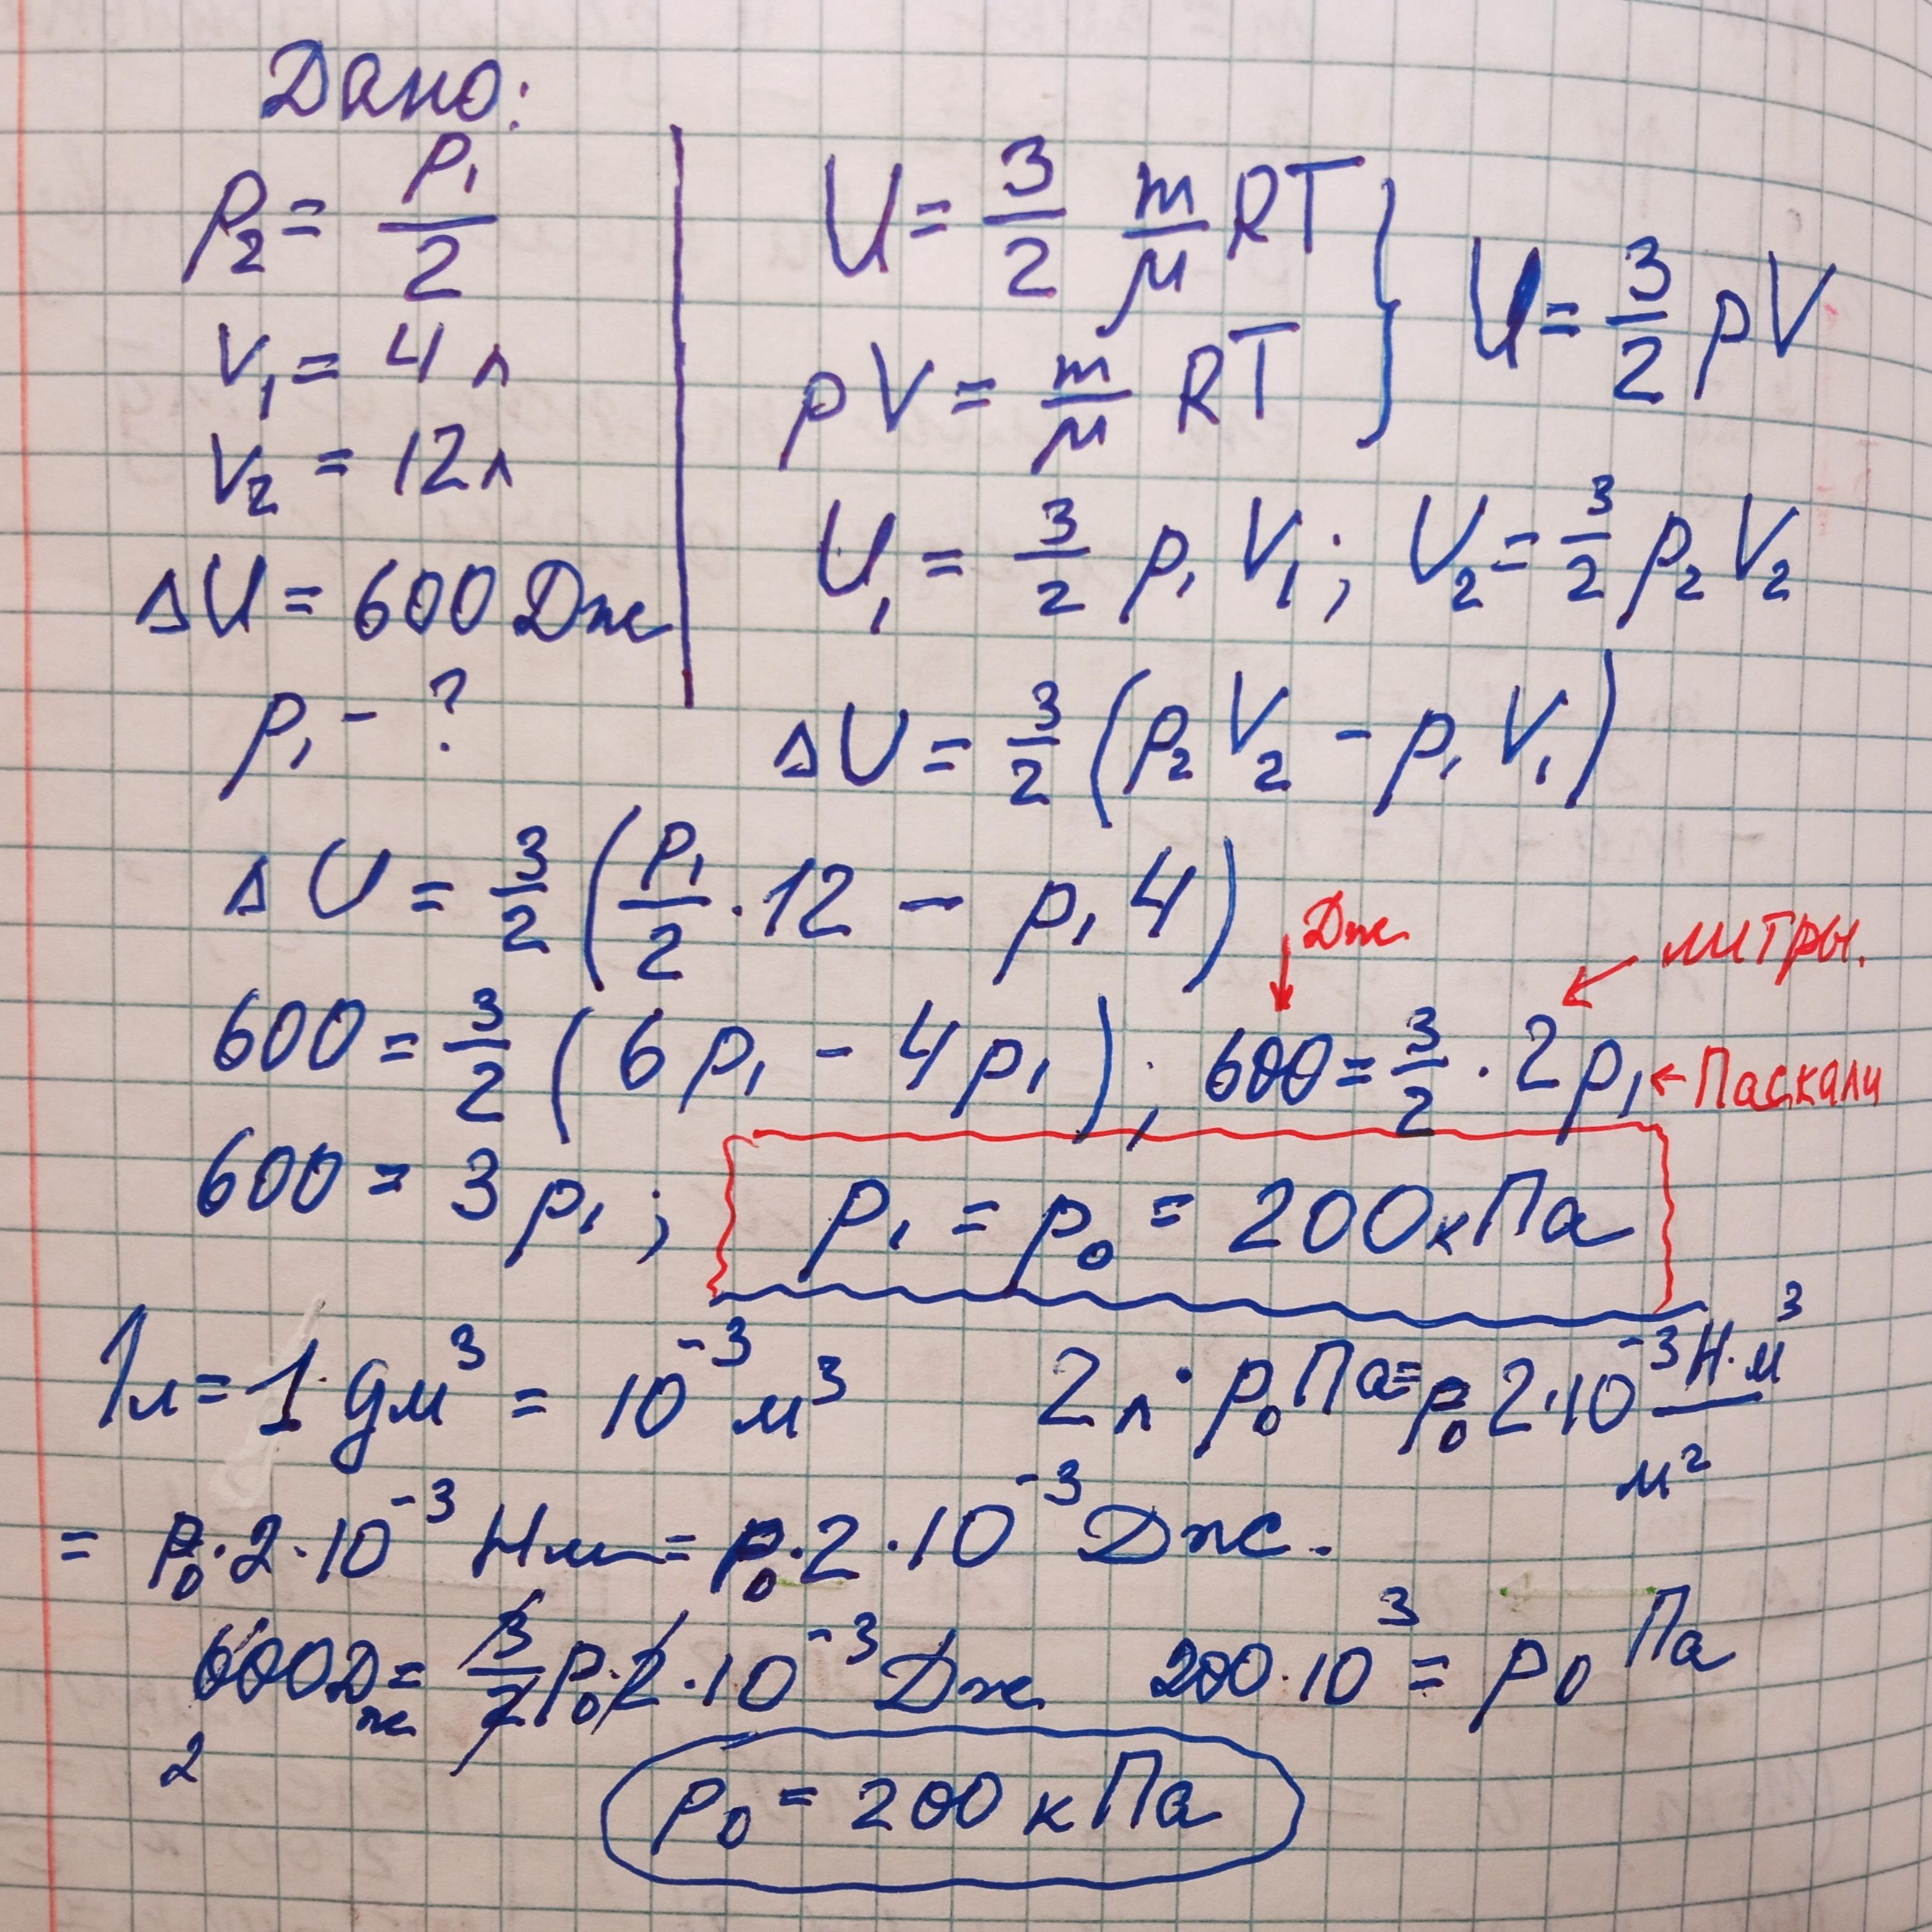 Дано:
p₂ = p₁/2
V₁ = 4 л
V₂ = 12 л
ΔU = 600 Дж
p₁ - ?
U = 3/2 m/μ RT } U = 3/2 pV
pV = m/μ RT
U₁ = 3/2 p₁ V₁; U₂ = 3/2 p₂ V₂
ΔU = 3/2 (p₂ V₂ - p₁ V₁)
ΔU = 3/2 (p₁/2 · 12 - p₁ 4)
Дж литры.
600 = 3/2 (6 p₁ - 4 p₁); 600 = 3/2 · 2 p₁ ← Паскали
600 = 3 p₁; p₁ = p₀ = 200 кПа
1 л = 1 дм³ = 10⁻³ м³ 2 л · p₀ Па = p₀ 2·10⁻³ Н·м³/м²
= p₀·2·10⁻³ Нм = p₀·2·10⁻³ Дж.
600 Дж = 3/2 p₀·2·10⁻³ Дж 200·10³ = p₀ Па
2
p₀ = 200 кПа